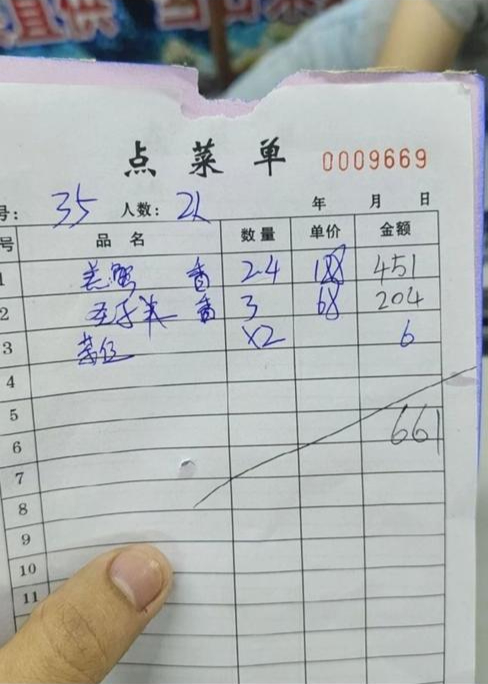 直供
点菜单 0009669
号: 35 人数: 2人 年 月 日
号 品名 数量 单价 金额
1 羔蟹 香 2.4 188 451
2 香 3 68 204
3 茶位 X2 6
4
5
661
6
7
8
9
10
11